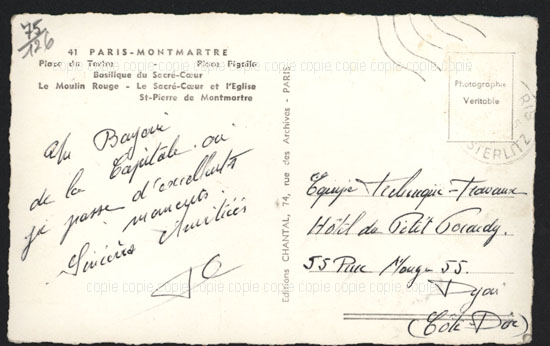 75/126
41 PARIS-MONTMARTRE
Place du Tertre - Place Pigalle
Basilique du Sacré-Cœur
Le Moulin Rouge - Le Sacré-Cœur et l'Eglise
St-Pierre de Montmartre
Un Bonjour
de la Capitale où
je passe d'excellents
moments.
Sincères Amitiés
Editions CHANTAL, 74, rue des Archives - PARIS
Photographie
Véritable
STERLITZ
Equipe Technique-Travaux
Hôtel du Petit
55 Rue Monge 55.
Dijon
(Côte D'or)
copie copie copie copie copie copie